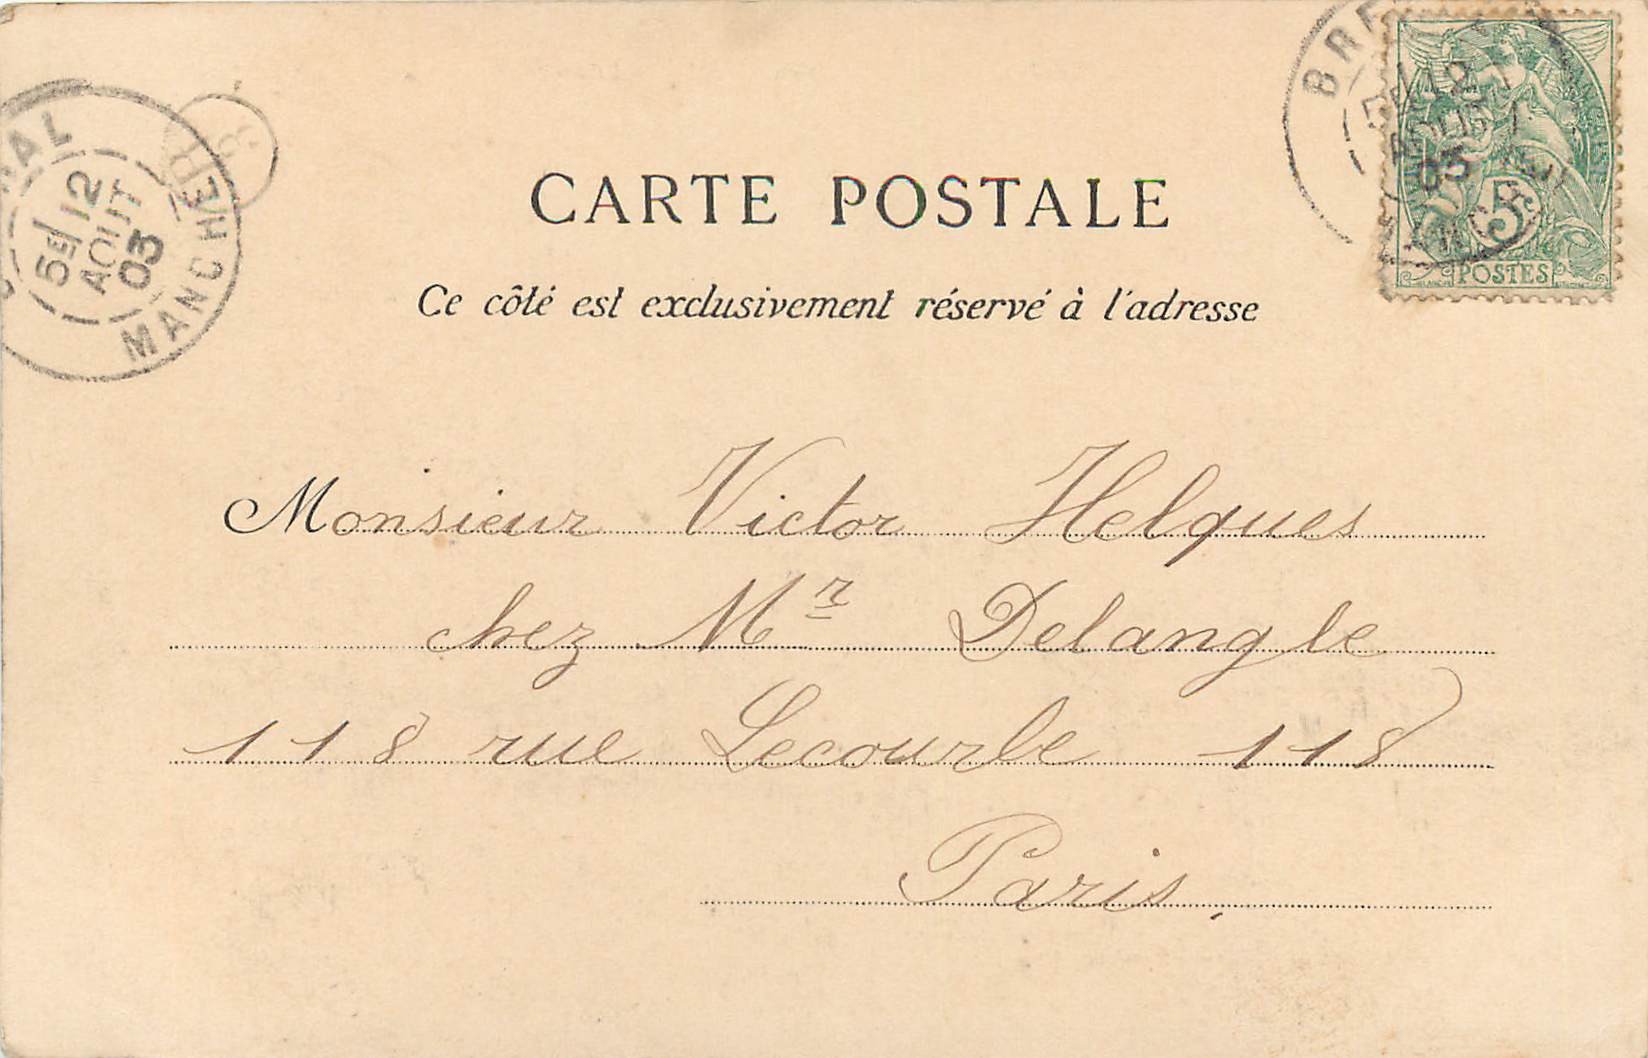 CARTE POSTALE
Ce côté est exclusivement réservé à l'adresse
5E 12
AOUT
03
MANCHE
12
AOUT
03
5
POSTES
Monsieur Victor Helques
chez Mr Delangle
118 rue Lecourbe 118
Paris.